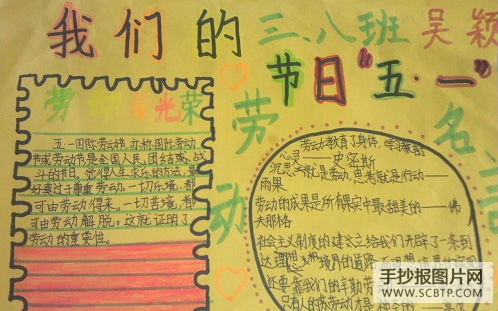 我们的
三、八班 吴颖
节日"五·一"
劳动最光荣
五·一国际劳动节，亦称国际劳动
节或劳动节是全国人民，团结或，战
斗的节日，觉得人生求乐的方法，最
好莫过于尊重劳动。一切乐境，都
可由劳动得来。一切苦境，都
可由劳动解脱。这就证明了
劳动的重要性。
劳动名言
劳动教育了身体，学习教育了
心灵——史密斯
沉思就是劳动，思考就是行动——
雨果
劳动的成果是所有果实中最甜美的——佛
夫那格
社会主义制度的建立给我们开辟了一条到
达理想境界的道路，而理想境界的
还要靠我们的辛勤劳
只有人的劳动才是
手抄报图片网
WWW.SCBTP.COM